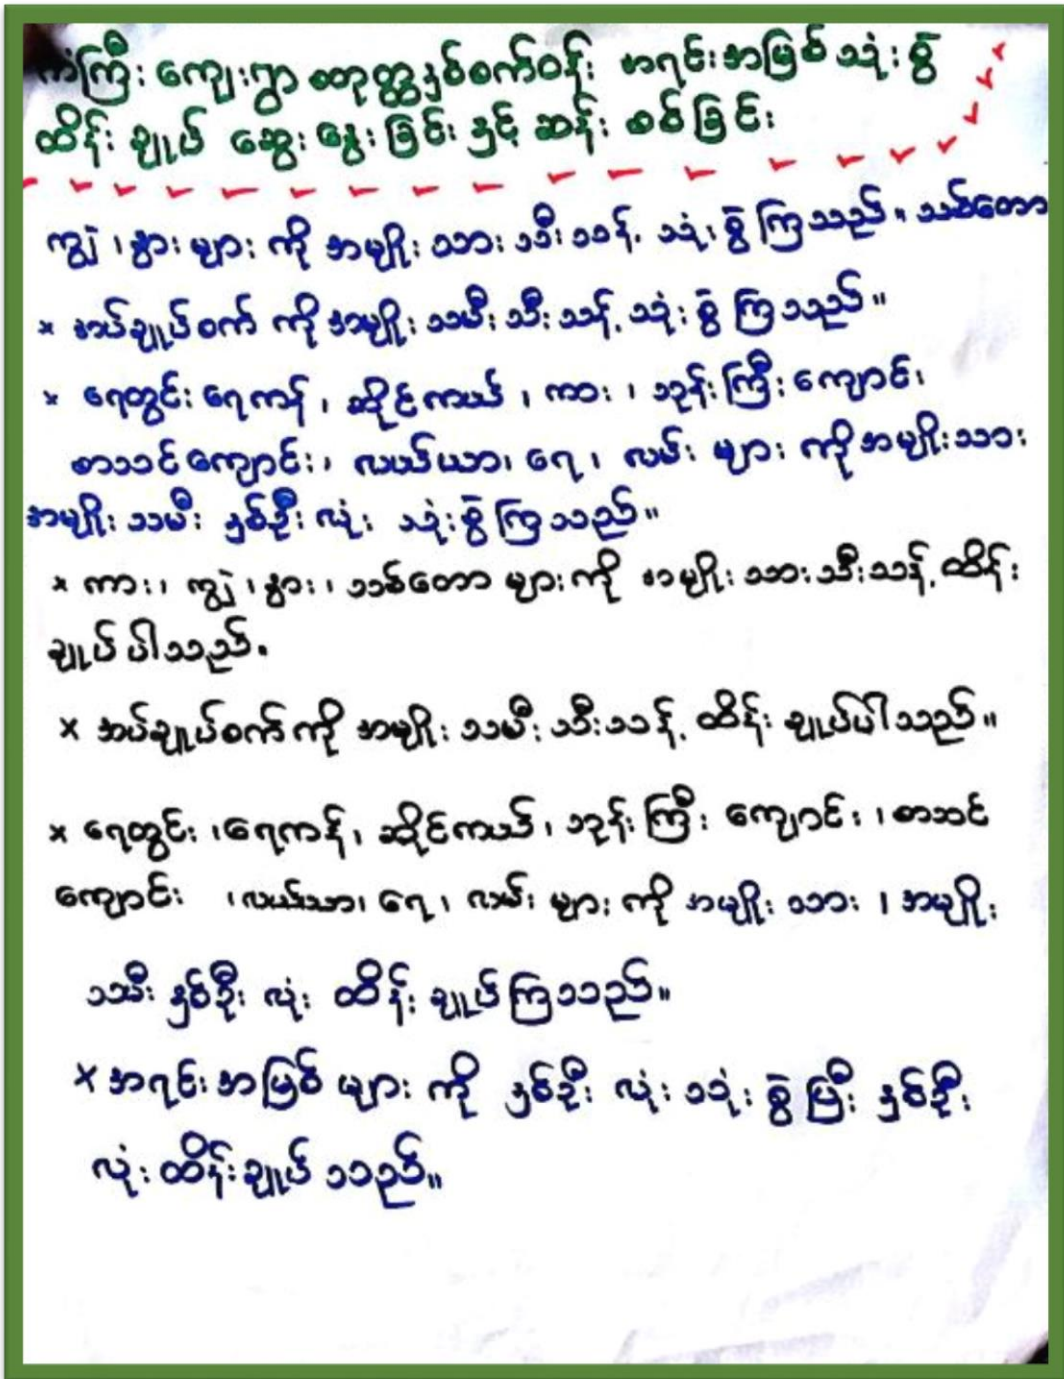 ကံကြီး ကျေးရွာ စတုတ္ထနှစ်စက်ဝန်း အရင်းအမြစ် သုံး စွဲ
ထိန်း ချုပ် ဆွေး နွေး ခြင်း နှင့် ဆန်း စစ် ခြင်း
ကျွဲ ၊ နွား များ ကို အမျိုး သား သီး သန့် သုံး စွဲ ကြ သည် ။ သစ်တော
× အပ်ချုပ်စက် ကို အမျိုး သမီး သီး သန့် သုံး စွဲ ကြ သည် ။
× ရေတွင်း ရေကန် ၊ ဆိုင်ကယ် ၊ ကား ၊ ဘုန်း ကြီး ကျောင်း
စာသင်ကျောင်း ၊ လယ်ယာ ၊ ရေ ၊ လမ်း များ ကို အမျိုးသား
အမျိုး သမီး နှစ်ဦး လုံး သုံး စွဲ ကြ သည် ။
× ကား ၊ ကျွဲ ၊ နွား ၊ သစ်တော များ ကို အမျိုး သား သီး သန့် ထိန်း
ချုပ် ပါ သည် ။
× အပ်ချုပ်စက် ကို အမျိုး သမီး သီး သန့် ထိန်း ချုပ်ပါ သည် ။
× ရေတွင်း ၊ ရေကန် ၊ ဆိုင်ကယ် ၊ ဘုန်း ကြီး ကျောင်း ၊ စာသင်
ကျောင်း ၊ လယ်ယာ ၊ ရေ ၊ လမ်း များ ကို အမျိုး သား ၊ အမျိုး
သမီး နှစ်ဦး လုံး ထိန်း ချုပ် ကြ သည် ။
× အရင်း အမြစ် များ ကို နှစ်ဦး လုံး သုံး စွဲ ပြီး နှစ်ဦး
လုံး ထိန်း ချုပ် သည် ။